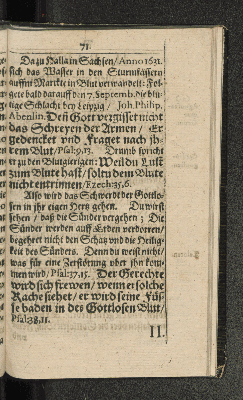 71.
Da zu Halla in Sachsen/Anno 1631.
sich das Wasser in den Sturmfässern
auffm Marckte in Blut verwandelt: Fol-
gete bald darauff den 7. Septemb. die blu-
tige Schlacht bey Leipzig / Joh. Philip.
Abenlin. Den Gott vergisset nicht
das Schreyen der Armen / Er
gedencket und fraget nach ih-
rem Blut/Psal: 9.13. Drumb spricht
er zu den Blutgierigen: Weil du Lust
zum Blute hast/soltu dem Blute
nicht entrinnen/Ezech: 35,6.
Also wird das Schwerdt der Gottlo-
sen in ihr eigen Hertz gehen. Du wirst
sehen / daß die Sünder vergehen; Die
Sünder werden auff Erden verdorren
begehret nicht den Schatz und die Heilig-
keit des Sünders. Denn du weist nicht/
was für eine Zerstörung über ihn kom-
men wird/Psal: 37,15. Der Gerechte
wird sich frewen/wenn er solche
Rache siehet/er wird seine Füs-
se baden in des Gottlosen Blut/
Psal: 58,11.
II.